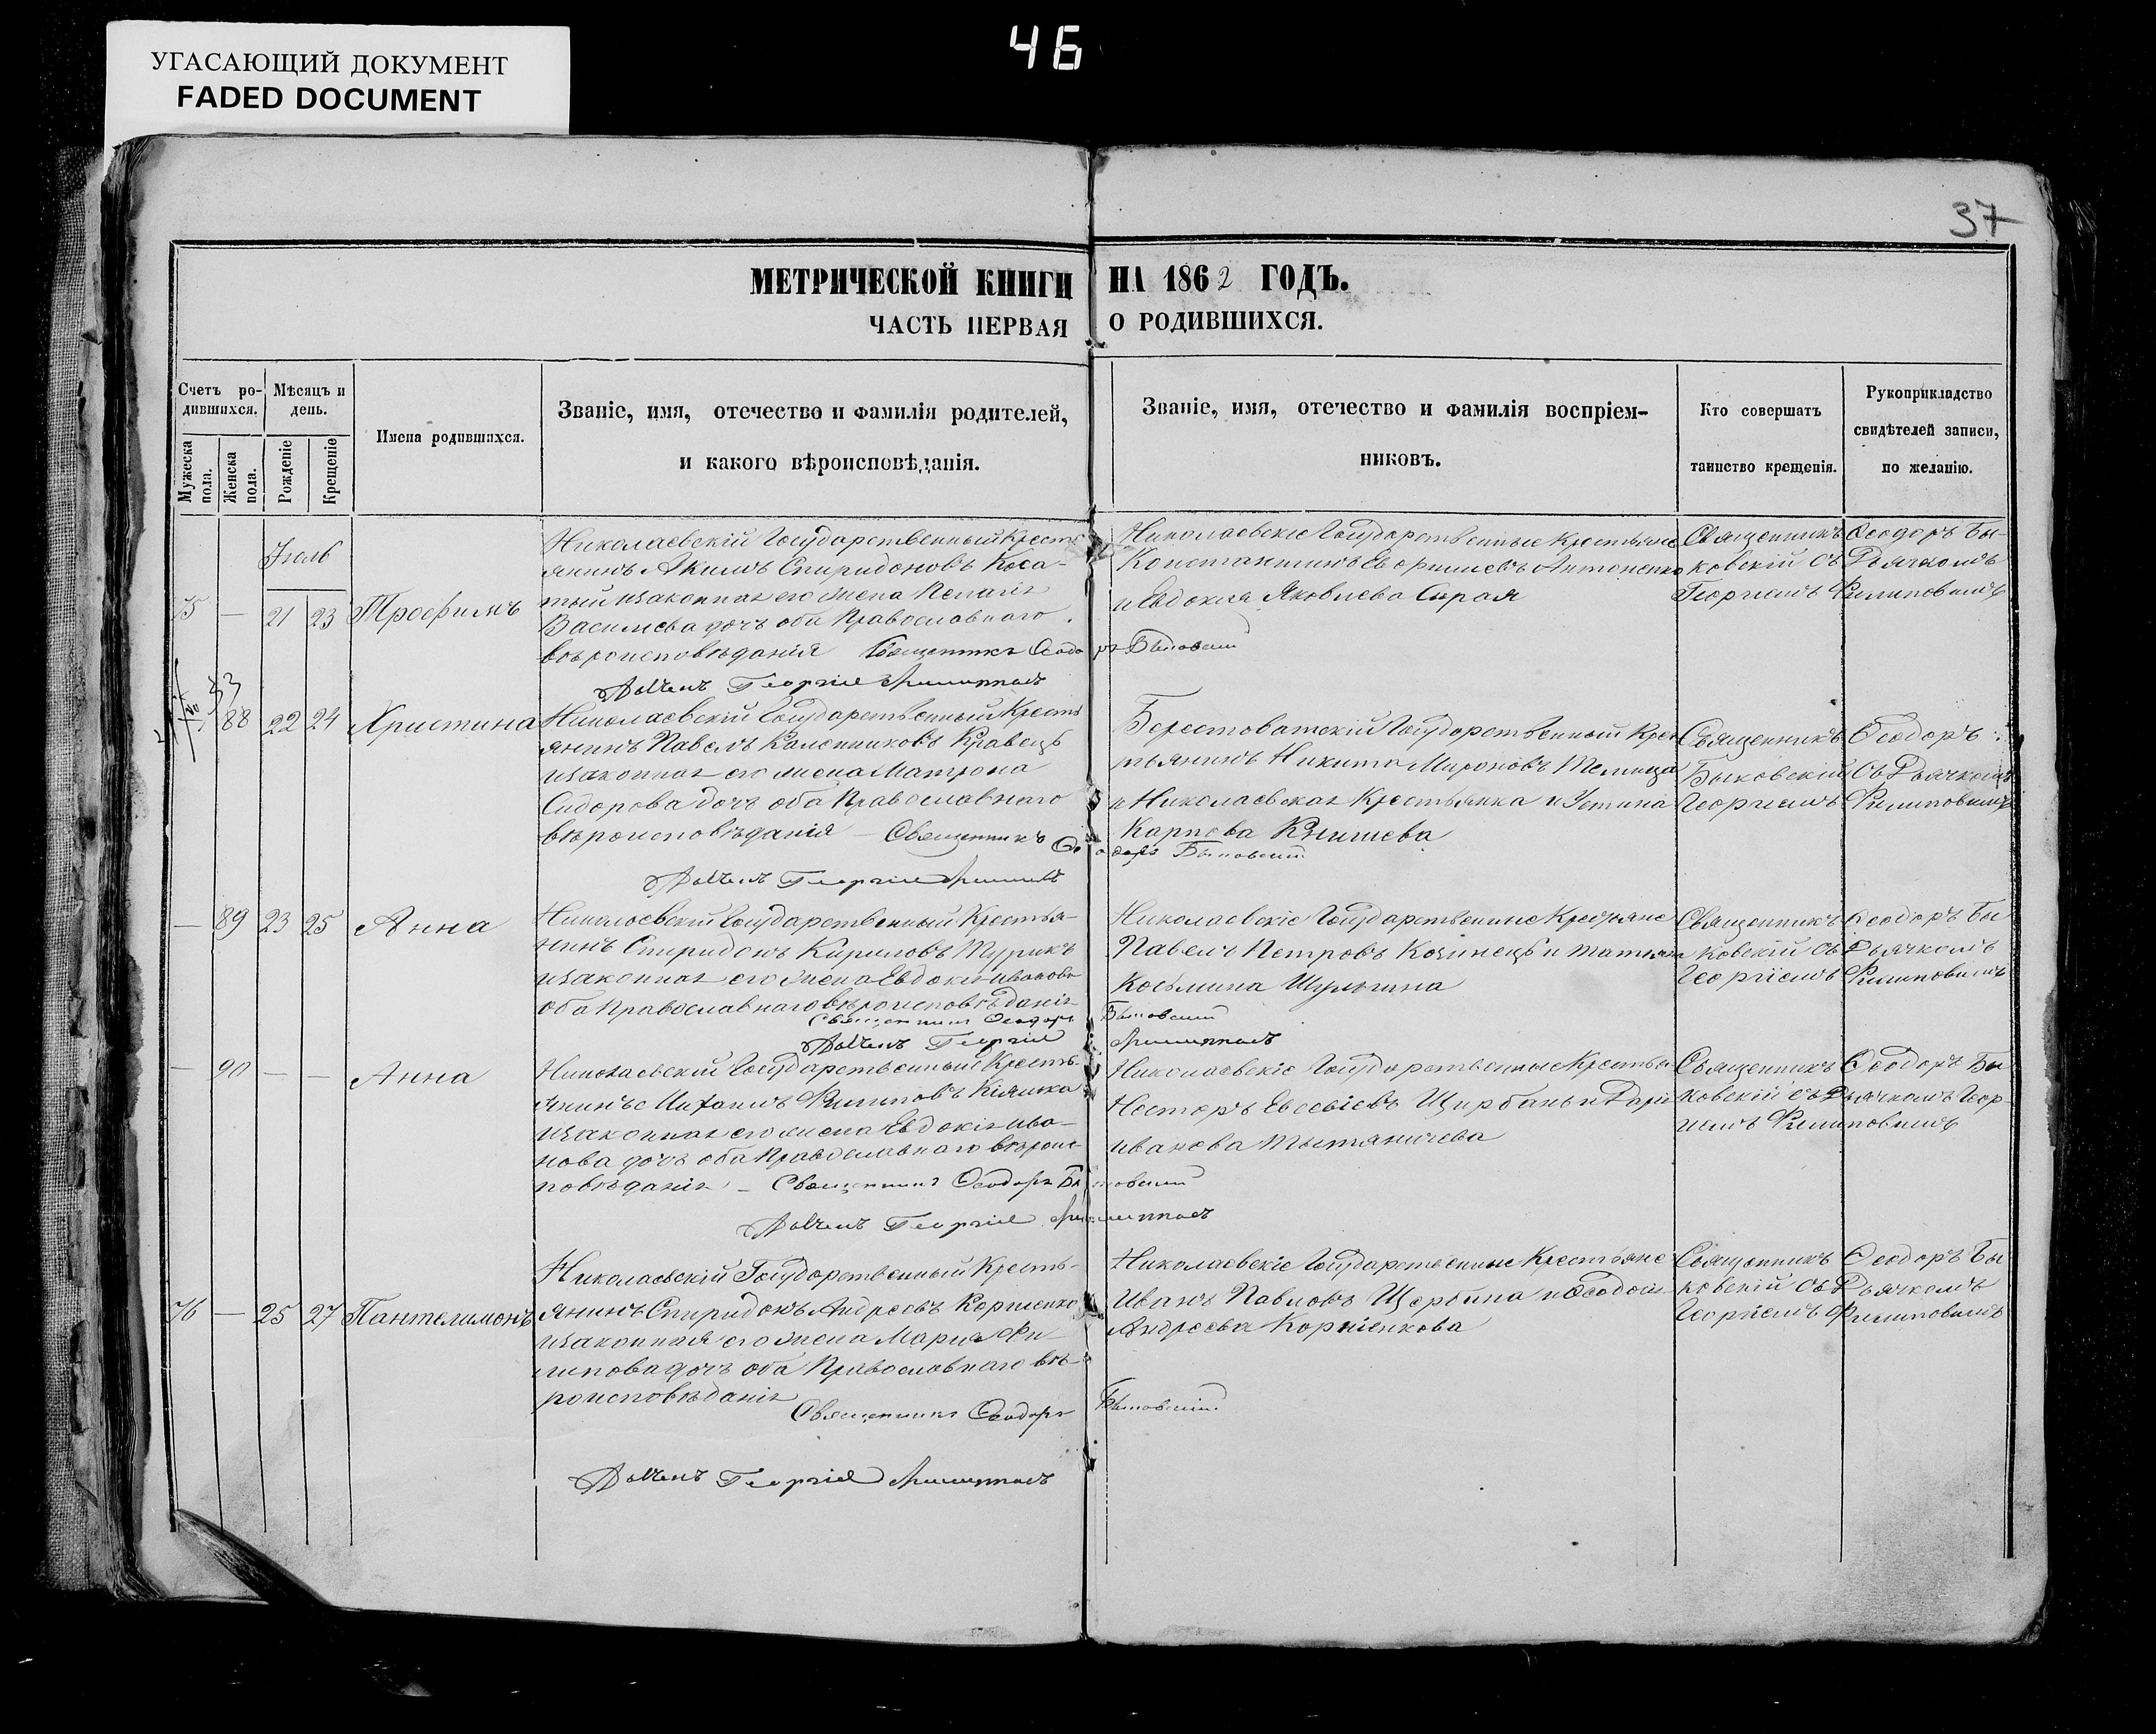 46
УГАСАЮЩИЙ ДОКУМЕНТ
FADED DOCUMENT
37
МЕТРИЧЕСКОЙ КНИГИ НА 1862 ГОДЪ.
ЧАСТЬ ПЕРВАЯ О РОДИВШИХСЯ.
Счетъ ро-
дившихся.
Мужеска пола.
Женска пола.
Мѣсяцъ и
день.
Рожденіе
Крещеніе
Имена родившихся.
Званіе, имя, отечество и фамилія родителей,
и какого вѣроисповѣданія.
Званіе, имя, отечество и фамилія воспріем-
никовъ.
Кто совершатъ
таинство крещенія.
Рукоприкладство
свидѣтелей записи,
по желанію.
Іюль
75 — 21 23 Трофимъ
Николаевскій Государственный Кресть
янинъ Акимъ Спиридоновъ Коса-
тый и законная его жена Пелагія
Василиева дочь оба Православнаго
вѣроисповѣданія Священникъ Ѳеодоръ Быковскій
Николаевскіе Государственные Крестьяне
Константинъ Антоненко
и Евдокия Яковлева Сирая
Священникъ Ѳеодоръ Бы-
ковскій съ Дьячкомъ
Георгіемъ Филиповымъ
— 88 22 24 Христина
Николаевскій Государственный Кресть
янинъ Павелъ Калениковъ Кравецъ
и законная его жена Матрона
Сидорова дочь оба Православнаго
вѣроисповѣданія — Священникъ Ѳеодоръ Быковскій
Берестоватскій Государственный Крес
тьянинъ Никита Мироновъ Телица
и Николаевская Крестьянка и Устина
Карпова
Священникъ Ѳеодоръ
Быковскій Съ Дьячкомъ
Георгіемъ Филиповымъ
— 89 23 25 Анна
Николаевскій Государственный Крестья-
нинъ Спиридонъ Кириловъ Турикъ
и законная его жена Евдокія Иванова
оба Православнаго вѣроисповѣданія
Священникъ Ѳеодоръ Быковскій
Николаевскіе Государственные Крестьяне
Павелъ Петровъ Козинецъ и Татьяна
Козьмина Шульгина
Священникъ Ѳеодоръ Бы
ковскій съ Дьячкомъ
Георгіемъ Филиповымъ
— 90 — — Анна
Николаевскій Государственный Кресть-
янинъ Филиповъ
и законная его жена Евдокія Ива-
нова дочь оба Православнаго вѣроис
повѣданія — Священникъ Ѳеодоръ Быковскій
Николаевскіе Государственные Крестья
Несторъ Евсевіевъ и Дарія
Иванова
Священникъ Ѳеодоръ Бы
ковскій съ Дьячкомъ Геор-
гіемъ Филиповымъ
76 — 25 27 Пантелимонъ
Николаевскій Государственный Кресть-
янинъ Спиридонъ Андреевъ Корниенко
и законная его жена Мария Фи
липова дочь оба Православнаго вѣ-
роисповѣданія
Священникъ Ѳеодоръ Быковскій
Николаевскіе Государственные Крестьяне
Иванъ Павловъ Щербина и
Андреева Корніенкова
Священникъ Ѳеодоръ Бы
ковскій съ Дьячкомъ
Георгіемъ Филиповымъ